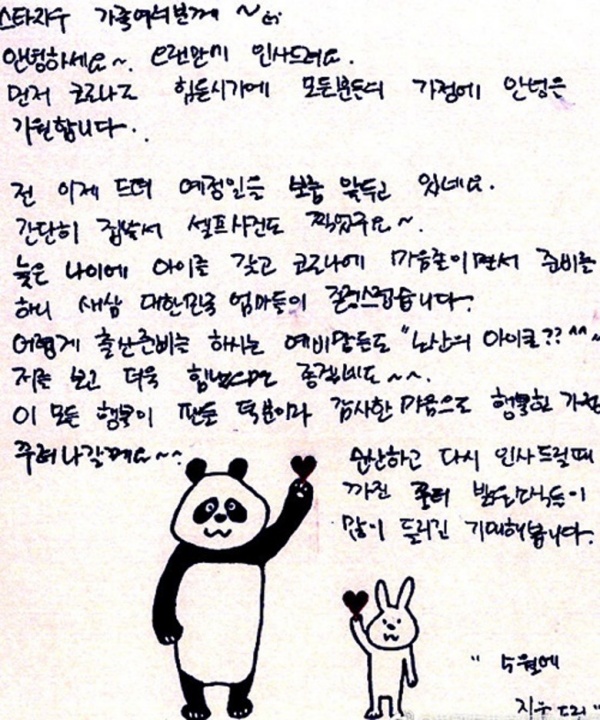 스타지우 가족여러분께 ~
안녕하세요~. 오랜만에 인사드려요.
먼저 코로나로 힘든시기에 모든분들의 가정에 안녕을
기원합니다.
전 이제 드뎌 예정일을 보름 앞두고 있네요.
간단히 집에서 셀프사진도 찍었구요~.
늦은 나이에 아이를 갖고 코로나에 마음졸이면서 준비를
하니 새삼 대한민국 엄마들이 존경스럽습니다.
어렵게 출산준비를 하시는 예비맘들도 "노산의 아이콘?? ^^~
저를 보고 더욱 힘내시면 좋겠네요~~.
이 모든 행복이 팬들 덕분이라 감사한 마음으로 행복한 가정
꾸려나갈께요~~
순산하고 다시 인사드릴때
까진 좀더 밝은소식들이
많이 들리길 기대해봅니다.
" 5월에
지우 드림 "